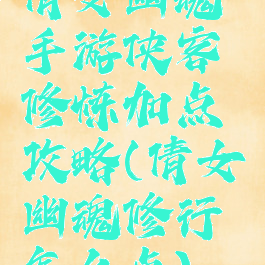 倩女幽魂
手游侠客
修炼加点
攻略(倩女
幽魂修行
怎么点)